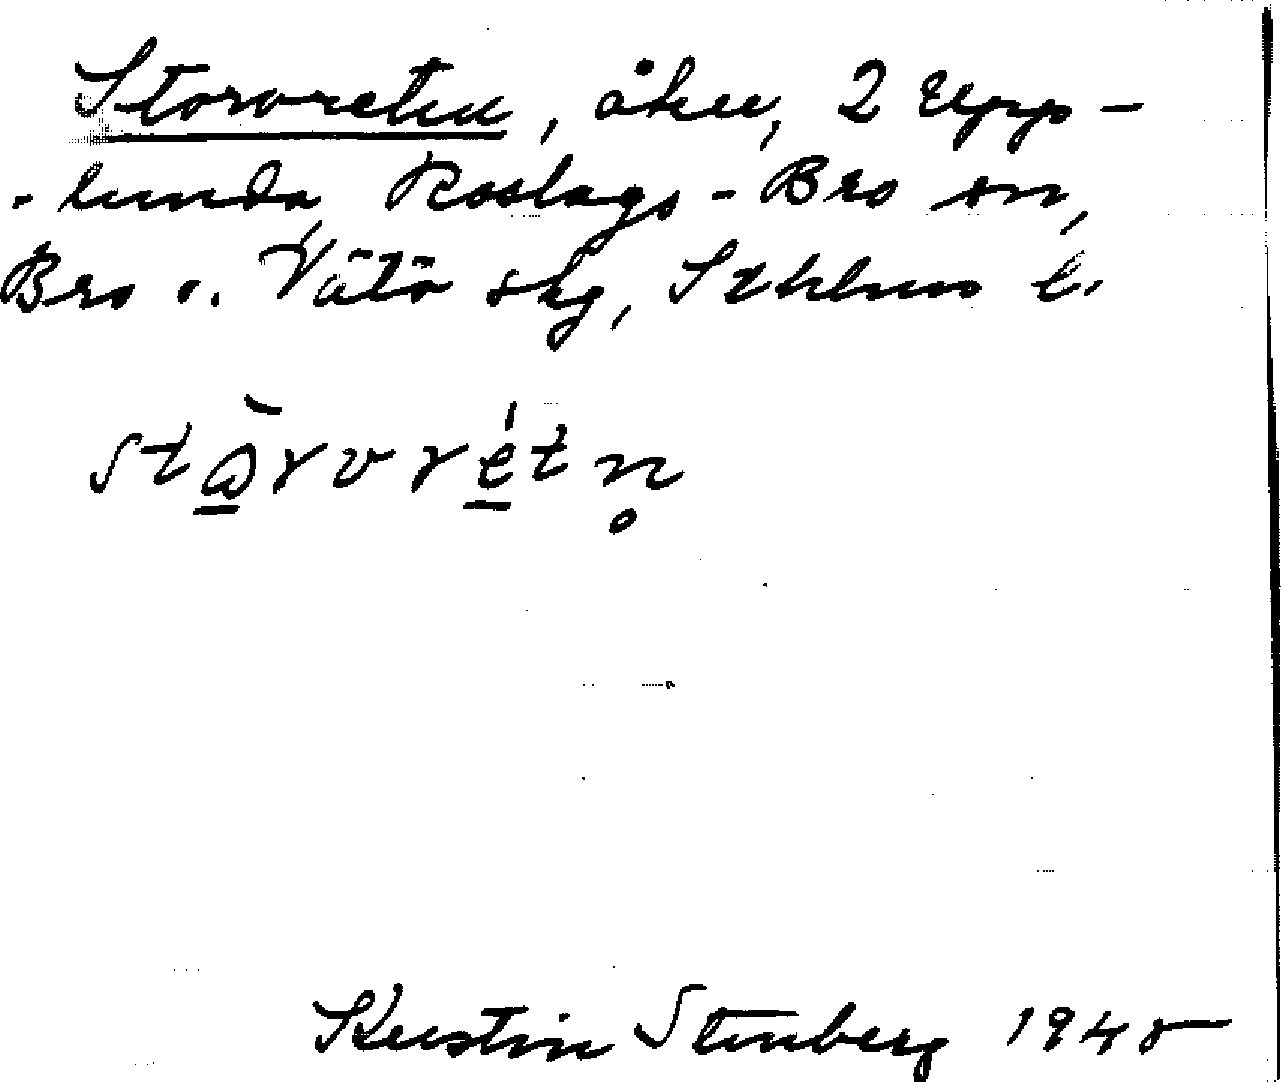 Storvreten, åker, 2 Upp-
-lunda, Roslags-Bro sn,
Bro o. Vätö skg, Sthlms l.
Kerstin Stenberg 1945